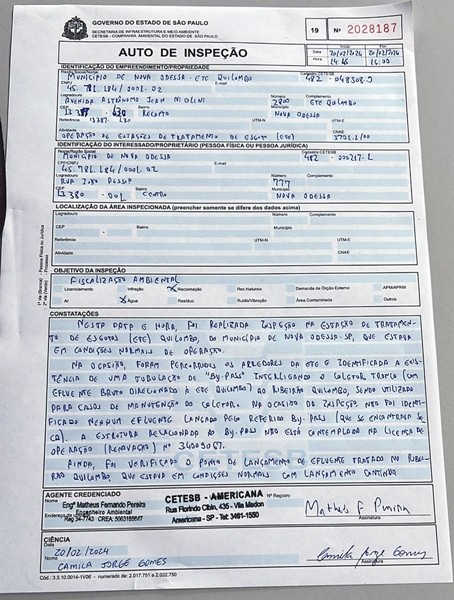 GOVERNO DO ESTADO DE SÃO PAULO
SECRETARIA DE INFRAESTRUTURA E MEIO AMBIENTE
CETESB - COMPANHIA AMBIENTAL DO ESTADO DE SÃO PAULO
19 Nº 2028187
AUTO DE INSPEÇÃO
Data 20/02/2024 20/02/2024
Hora 14:45 16:15
IDENTIFICAÇÃO DO EMPREENDIMENTO/PROPRIEDADE
Nome/Razão Social Cadastro CETESB
MUNICÍPIO DE NOVA ODESSA - ETE QUILOMBO 482-
CNPJ/CPF E-mail
45.781.184/0001.02
Logradouro Número Complemento
AVENIDA ASTRÔNOMO JEAN 2800 ETE QUILOMBO
CEP Bairro Município
RECANTO NOVA ODESSA
Referência UTM-N UTM-E
Atividade CNAE
OPERAÇÃO DE ESTAÇÕES DE TRATAMENTO DE ESGOTO (ETE) 3701.1/00
IDENTIFICAÇÃO DO INTERESSADO/PROPRIETÁRIO (PESSOA FÍSICA OU PESSOA JURÍDICA)
Nome/Razão Social Cadastro CETESB
MUNICÍPIO DE NOVA ODESSA 482 - 000217-
CPF/CNPJ E-mail
45.781.184/0001.02
Logradouro Número Complemento
RUA JOÃO PESSOA 777
CEP Bairro Município
13380 - CENTRO NOVA ODESSA
LOCALIZAÇÃO DA ÁREA INSPECIONADA (preencher somente se difere dos dados acima)
Logradouro Número Complemento
CEP Bairro Município
Referência UTM-N UTM-E
Atividade CNAE
OBJETIVO DA INSPEÇÃO
FISCALIZAÇÃO AMBIENTAL
Licenciamento Infração X Reclamação Rec.Naturais Demanda de Órgão Externo APM/APRM
Ar X Água Resíduo Solo Ruído/Vibração Área Contaminada Outros
CONSTATAÇÕES
NESTA DATA E HORA, FOI REALIZADA INSPEÇÃO NA ESTAÇÃO DE TRATAMEN-
TO DE ESGOTOS (ETE) QUILOMBO, DO MUNICÍPIO DE NOVA ODESSA-SP, QUE ESTAVA
EM CONDIÇÕES NORMAIS DE OPERAÇÃO.
NA OCASIÃO, FORAM PERCORRIDOS OS ARREDORES DA ETE E IDENTIFICADA A EXIS-
TÊNCIA DE UMA TUBULAÇÃO DE "BY-PASS" INTERLIGANDO O COLETOR TRONCO (COM
EFLUENTE BRUTO DIRECIONADO À ETE QUILOMBO) AO RIBEIRÃO QUILOMBO, SENDO UTILIZADO
PARA CASOS DE MANUTENÇÃO DO COLETOR. NA OCASIÃO DE INSPEÇÃO NÃO FOI IDENTI-
FICADO NENHUM EFLUENTE LANÇADO PELO REFERIDO BY-PASS (QUE SE ENCONTRAVA SE-
CO). A ESTRUTURA RELACIONADA AO BY-PASS NÃO ESTÁ CONTEMPLADA NA LICENÇA DE
OPERAÇÃO (RENOVAÇÃO) Nº
AINDA, FOI VERIFICADO O PONTO DE LANÇAMENTO DE EFLUENTE TRATADO NO RIBEI-
RÃO QUILOMBO, QUE ESTAVA EM CONDIÇÕES NORMAIS COM LANÇAMENTO CONTÍNUO
CETESB
AGENTE CREDENCIADO
Engº Matheus Fernando Pereira
Engenheiro Ambiental
CETESB - AMERICANA
Nº Registro
Rua Florindo Cibin, 435 - Vila Medon
Americana - SP - Tel: 3461-1550
Matheus F Pereira
Assinatura
CIÊNCIA
Data
20/02/2024
Nome
CAMILA JORGE GOMES
Camila Jorge Gomes
Assinatura
Cód.: 3.3.10.0014-1V06 - numerado de: 2.017.751 a 2.032.750